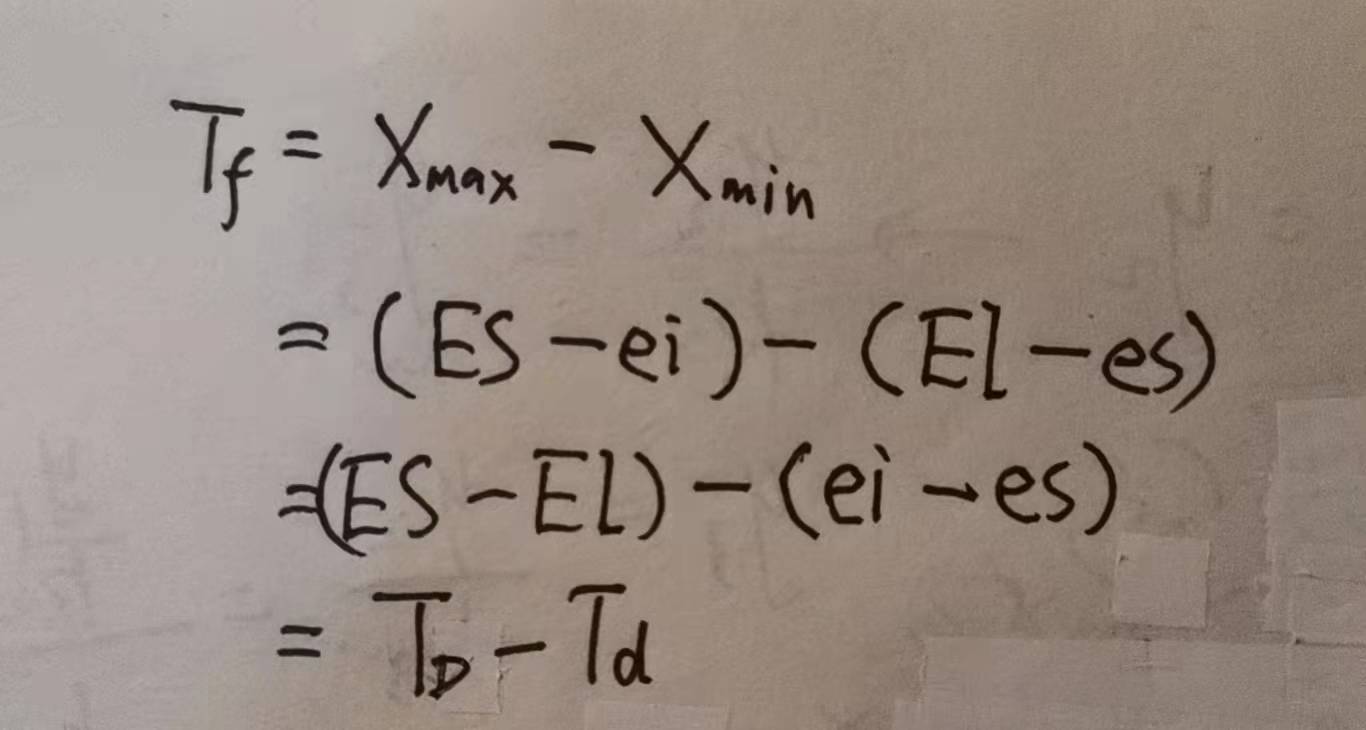 Tf = Xmax - Xmin
= (ES - ei) - (El - es)
=(ES - El) - (ei - es)
= TD - Td